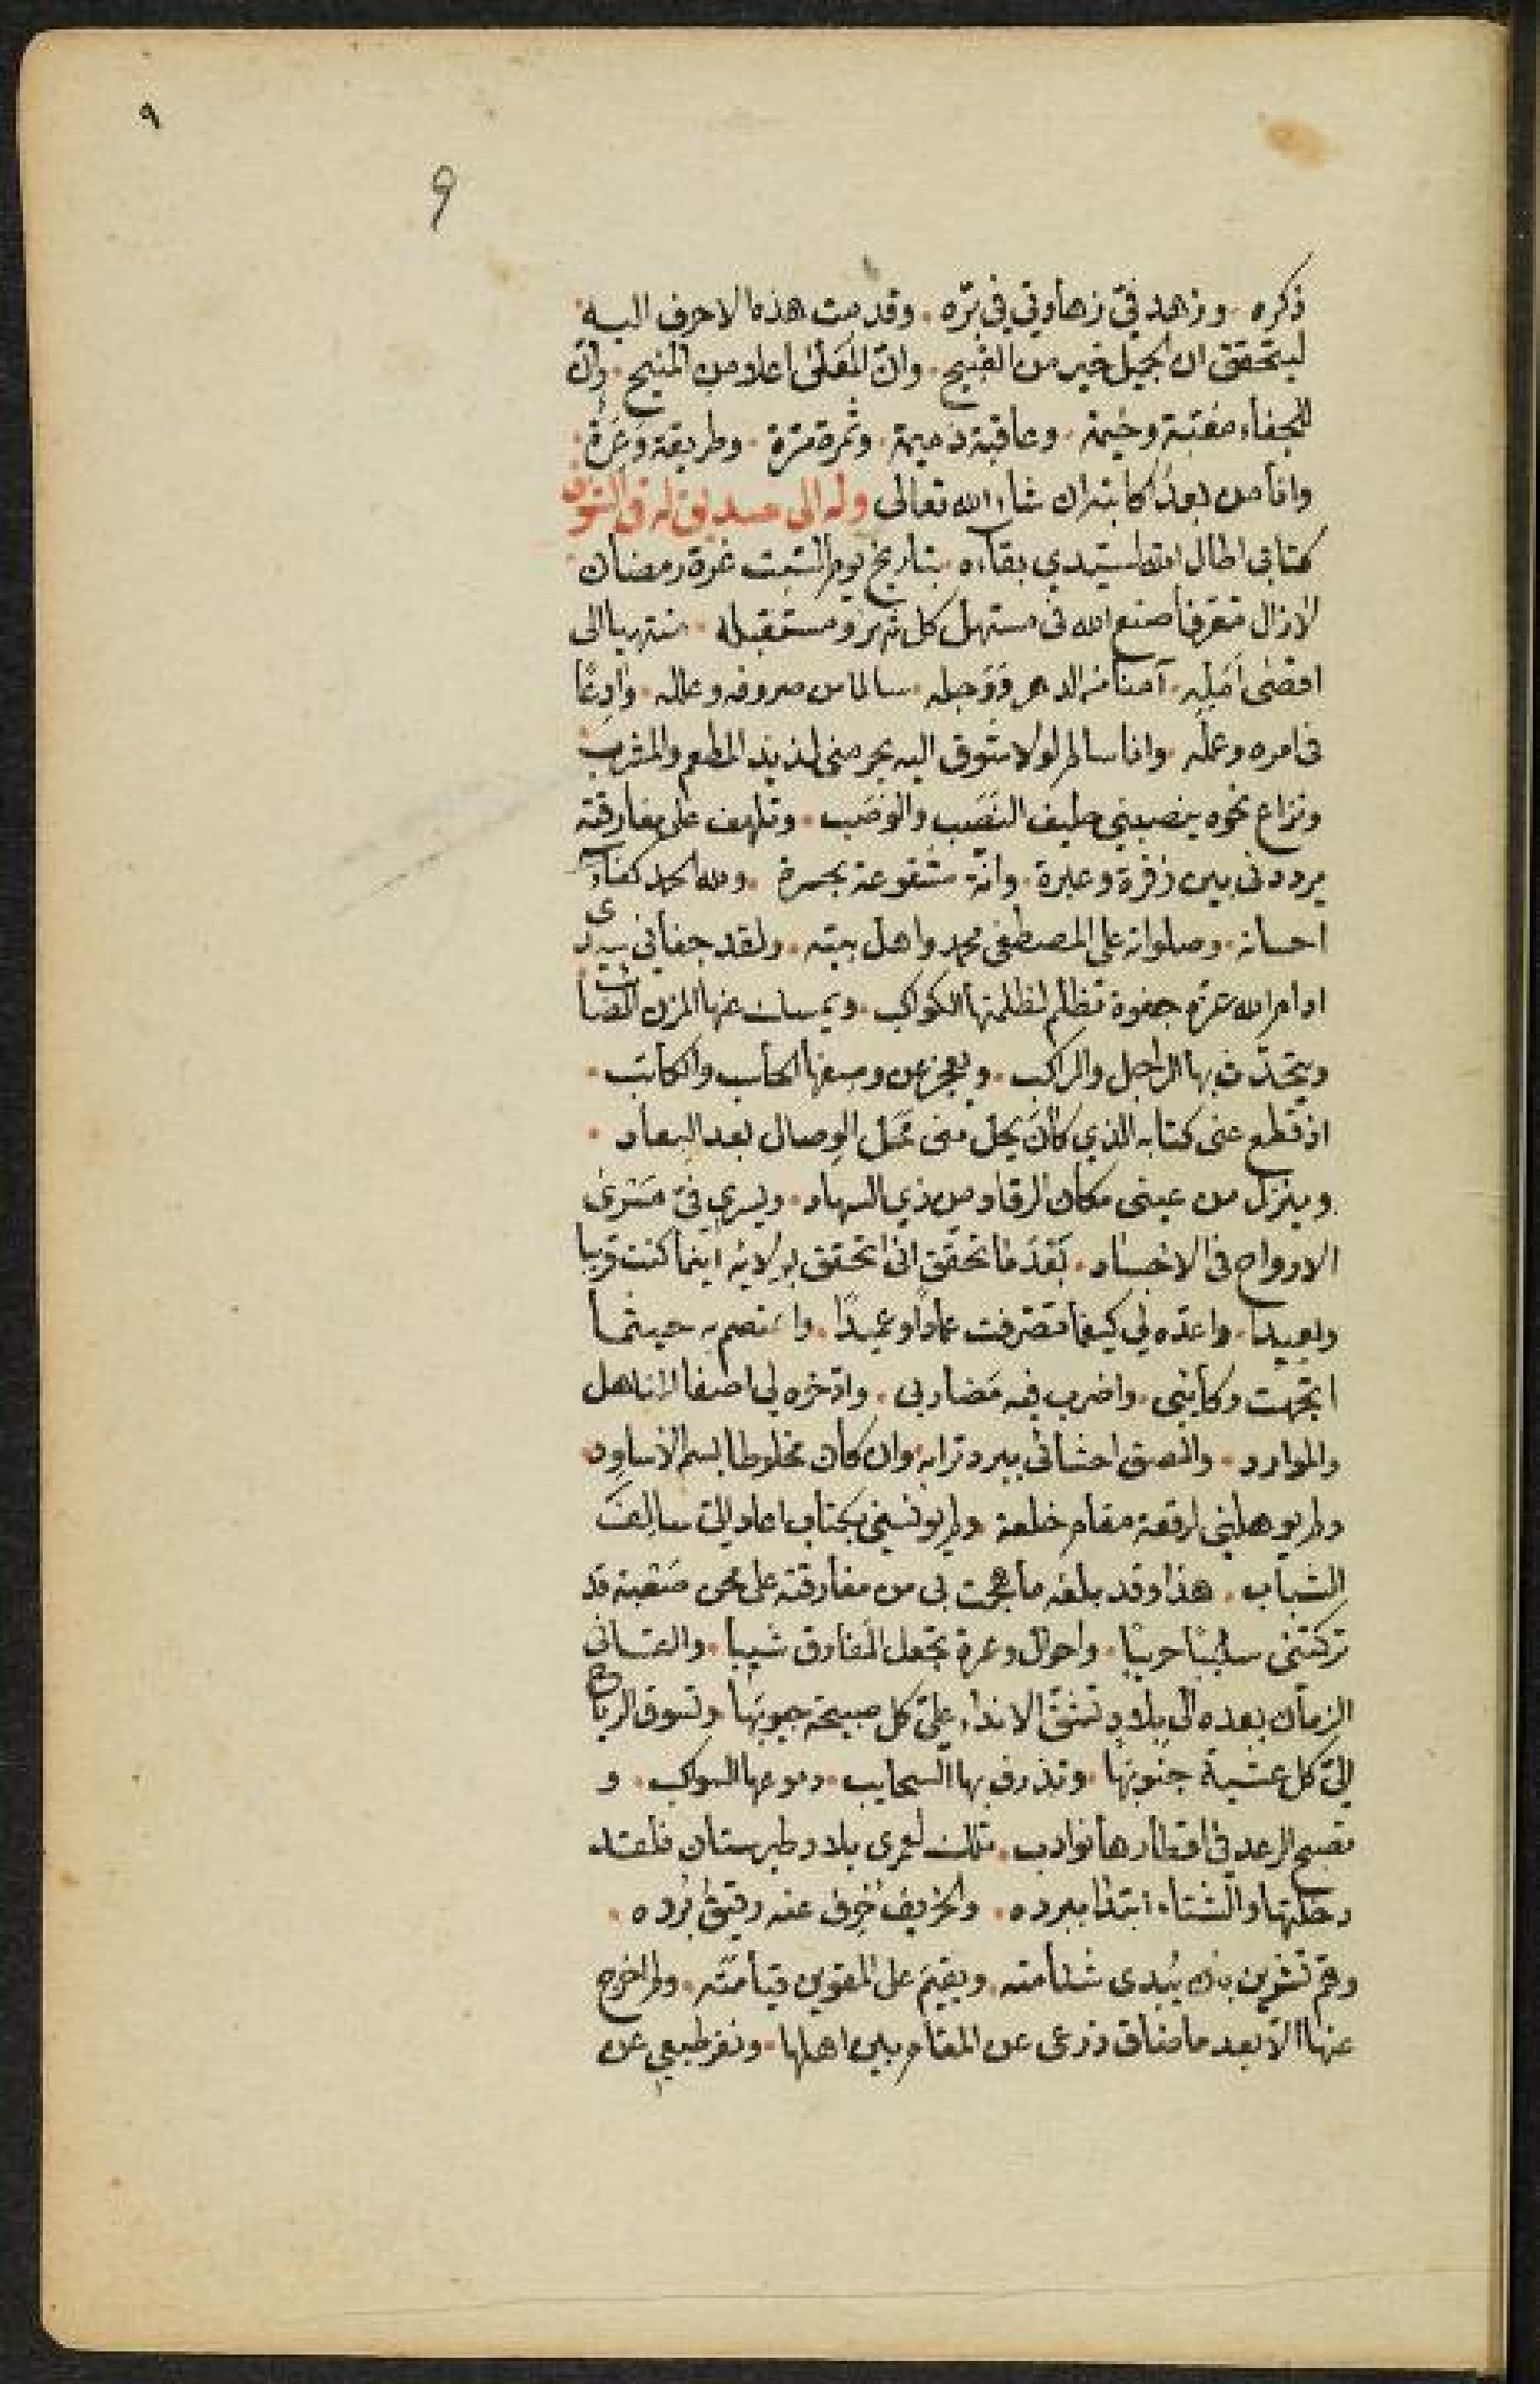 ٩
9
ذكره . وزهد فيّ زهادتي في برّه . وقدمت هذه الاحرف اليه
ليتحقق ان الجميل خير من القبيح . وان المعلى اعلا من المنيح . وان
للجفاء مغبّة وخيمة . وعاقبة ذميمة . وثمرة مُرّة . وطريقة وَعْرة
وانا من بعدُ كاتبه ان شاء الله تعالى وله الى صديق له في الشوق
كتابي اطال الله لسيّدي بقاءه . بتاريخ يوم السبت غرة رمضان
لا زال متعرفا صنع الله في مستهل كل شهر ومستقبله . منتهيا الى
اقصى اَمَلِه . آمنا من الدهر ووجله . سالما من صروفه وعلله . وادِعًا
في امره وعمله . وانا سالم لولا شوق اليه يحرمني لذيذ المطعم والمشرب
ونزاع نحوه ينصبني حليف النصَب والوصَب . وتلهف على مفارقته
يرددني بين زفرة وعبرة . وانّة مشفوعة بحسرة . ولله الحمد كفاء
احسانه . وصلواته على المصطفى محمد واهل بيته . ولقد جفاني سيدي
ادام الله عزه جفوة تظلم لظلمتها الكواكب . ويمسك عنها المزن الصّائب
ويتحدّث بها الراجل والراكب . ويعجز عن وصفها الحاسب والكاتب .
اذ قطع عني كتابه الذي كان يحل مني محَل الوصال بعد البعاد .
وينزل من عيني مكان الرقاد من ذي السهاد . ويسري فيّ مَسْرى
الارواح في الاجساد . بَعْدَ ما تحقّق اني اتحقق بولايته اينما كنت قريبا
وبعيدا . واعدّه لي كيفما تصرفت عمادًا وعميدًا . واعتصم به حيثما
اتجهت ركائبي . واضرب فيه مَضاربي . وادّخره لي اصفا المناهل
والموارد . والصق احشائي ببرد ترابه وان كان مخلوطا بسم الاساود
ولم يوهلني لرقعة مقام خلعة . ولم يونسني بكتاب اعاد اليّ سالِفَ
الشباب . هذا وقد بلغه ما هجمت بي من مفارقته على محن صَعبة قد
تركتني سليبًا حريبًا . واحوال وعرة تجعل المفارق شيبا . والقتاني
الزمان بعده الى بلاد تشقّ الانداء عليّ كل صبيحة جيوبَها . وتسوق الرياح
اليّ كل عشية جنوبَها . وتذرف بها السحايب . دموعها السواكب . و
تصبح الرعد في اقطارها نوادب . تلك لعمري بلاد طبرستان فلقد
دخلتها والشتاء ابتدا ببرده . والخريف خرف عنه رقيق بُرده .
وهمّ تشرين بان يُبدى شأمته . ويقيم على المقوين قيامَته . ولم اخرج
عنها الّا بعد ما ضاق ذرعى عن المقام بين اهلها . ونفر طبعي عن